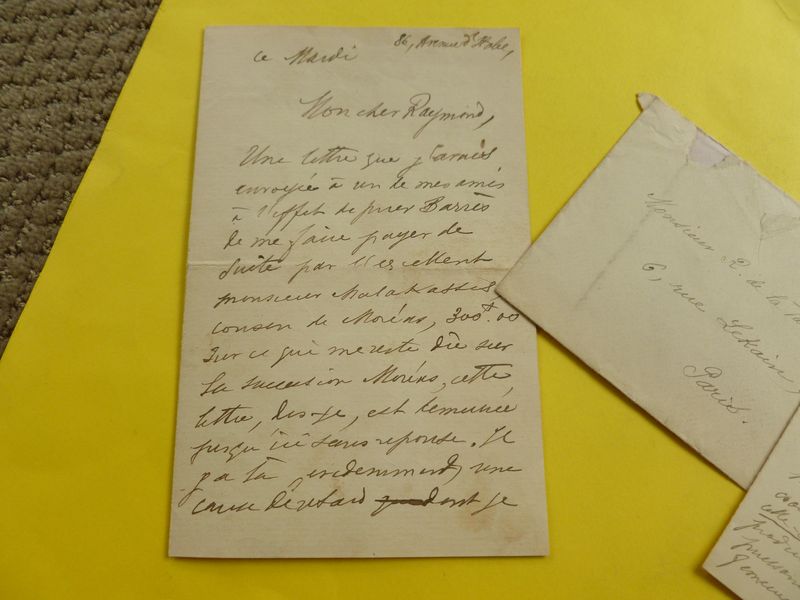 ce Mardi
86, Avenue
Mon cher Raymond,
Une lettre que j'avais
envoyée à un de mes amis
à l'effet de prier Barrès
de me faire payer de
suite par l'excellent
monsieur Malakassis,
cousin de Moréas, 300f.00
sur ce qui me reste dû sur
la succession Moréas, cette
lettre, dis-je, est demeurée
jusqu'ici sans réponse. Il
y a là, evidemment, une
cause de retard dont je
Monsieur R. de la
6, rue Lekain,
Paris.